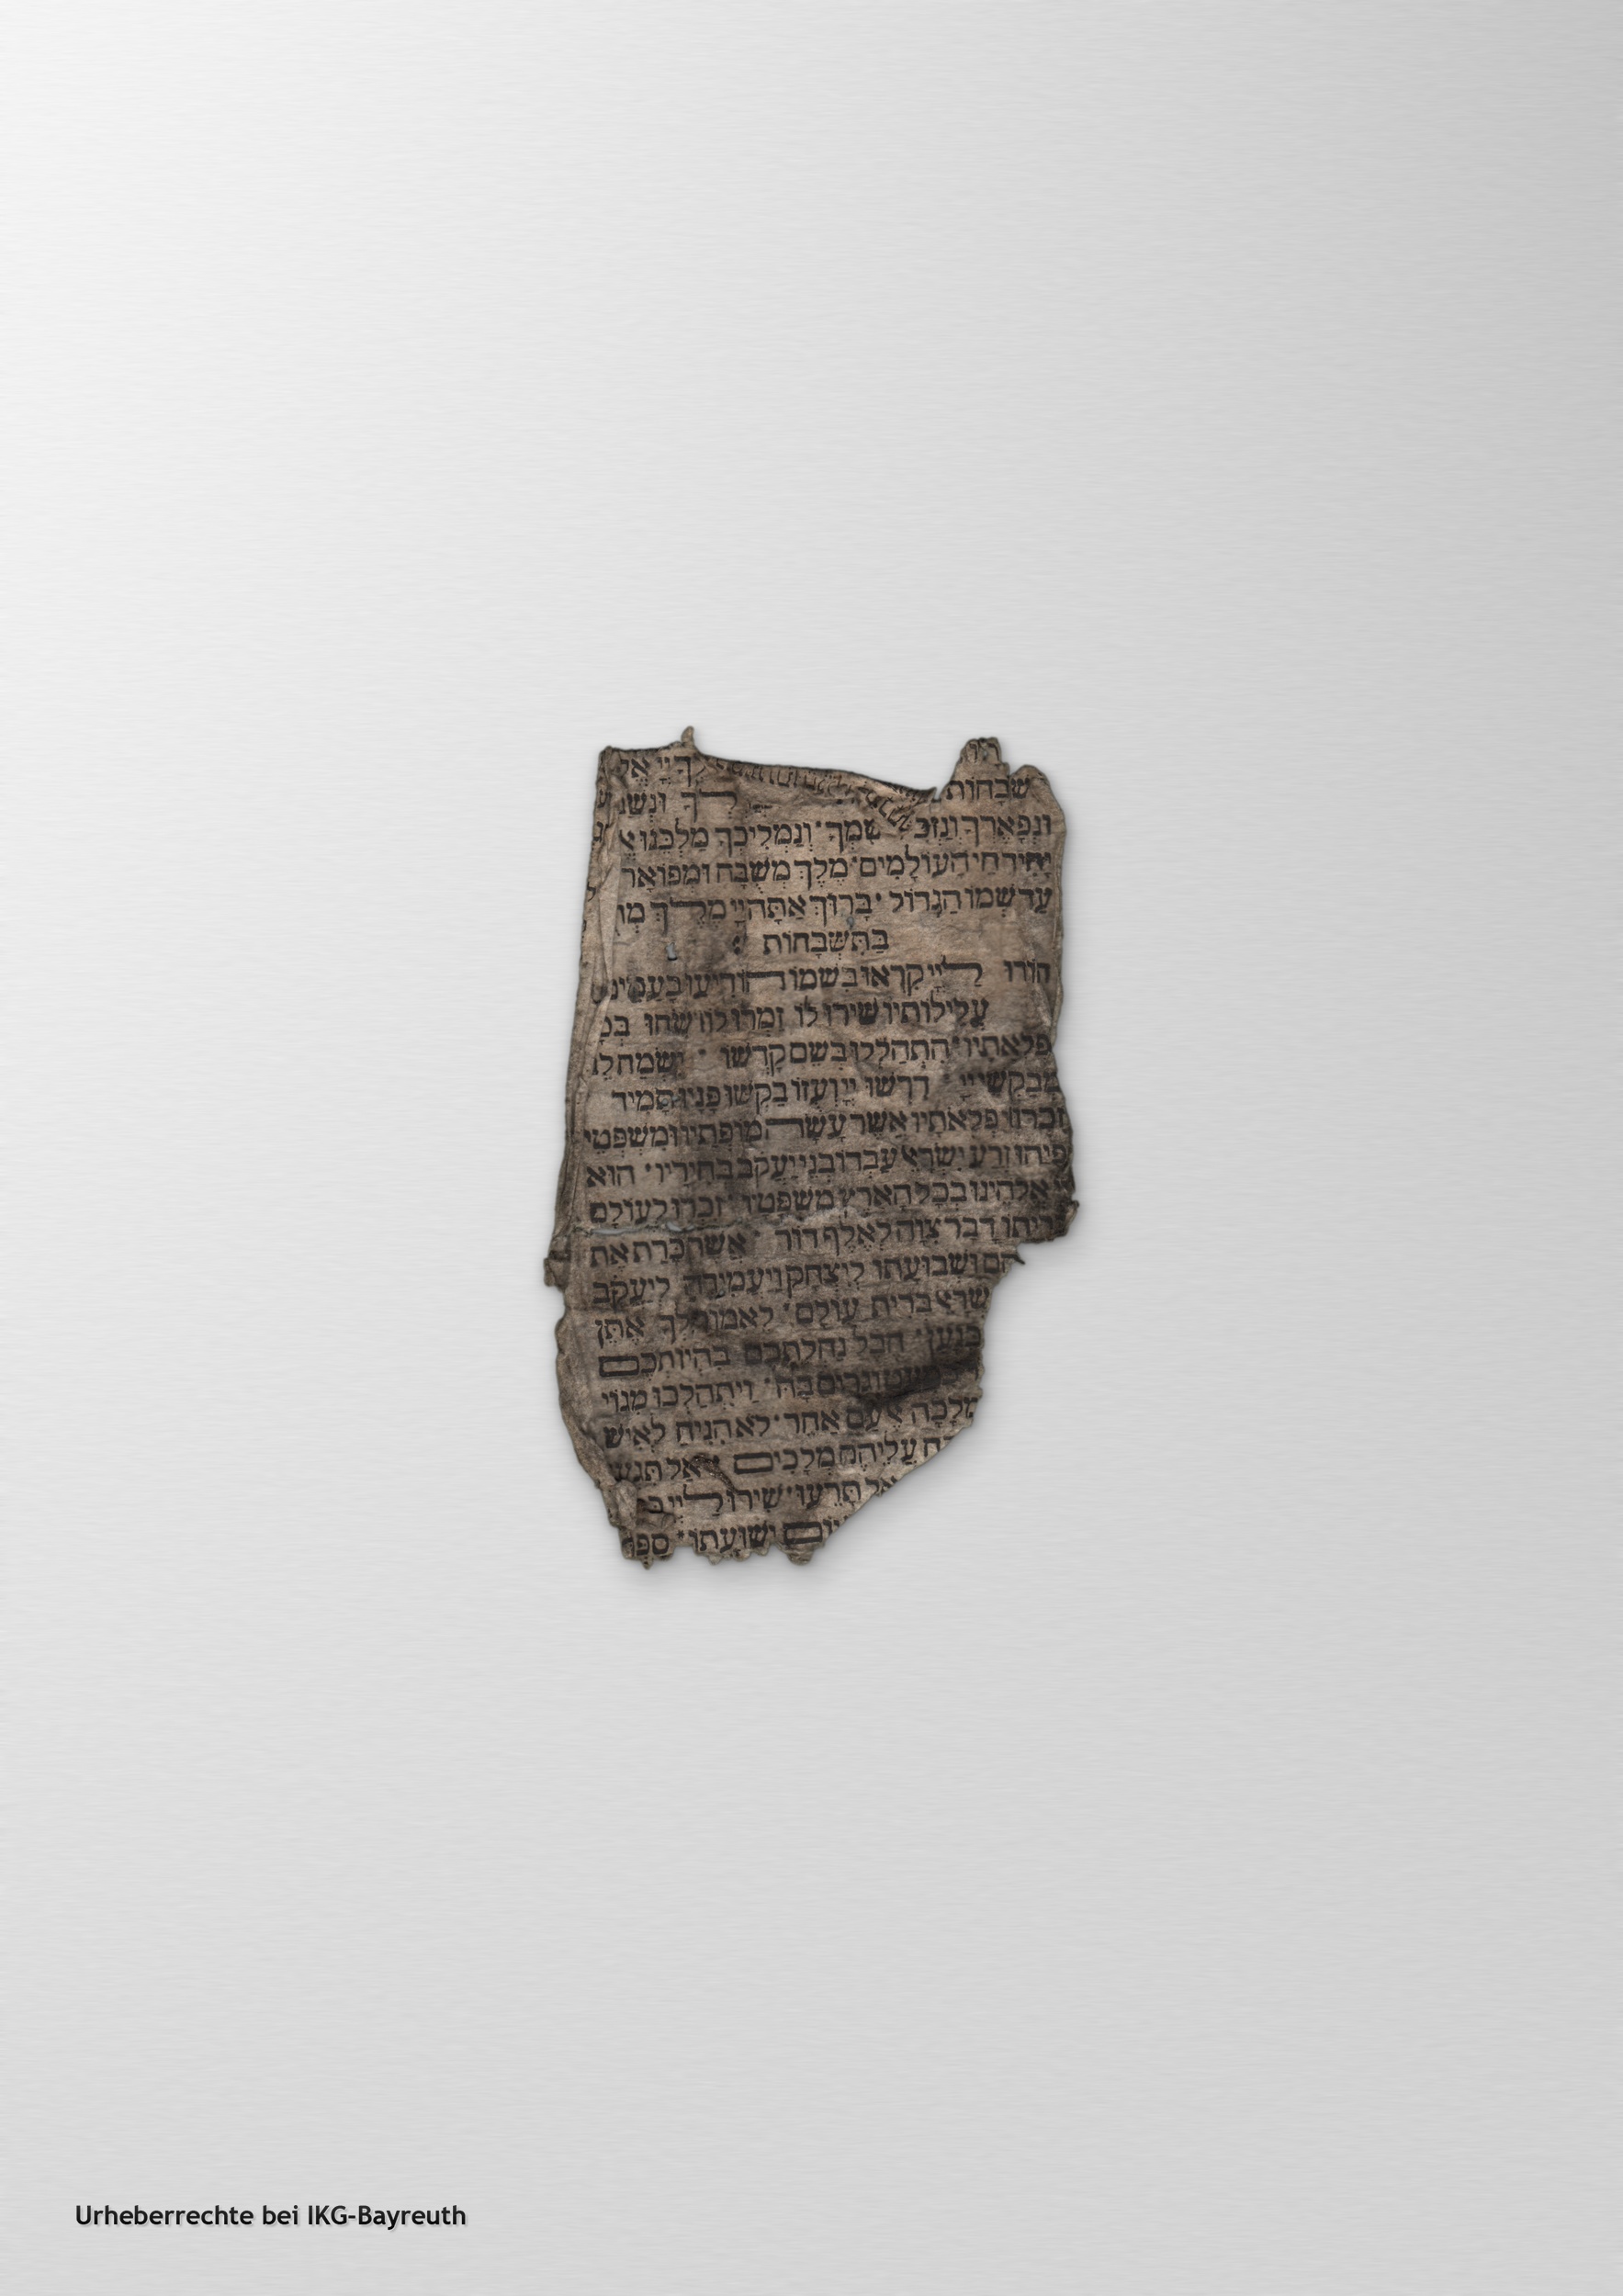 ךָ יְיָ אל
שבחות ךָ ונש
ונפארך ונזכ שמך · ונמליכך מלכנו א
יחיד חי העולמים · מלך משבח ומפואר
עד שמו הגדול · ברוך אתה יי מלך מו
בתשבחות :
הודו ליי קראו בשמו הודיעו בעמים
עלילותיו שירו לו זמרו לו שחו בכ
פלאתיו · התהללו בשם קדשו · ישמח ל
מבקשי יי דרשו יי ועזו בקשו פניו תמיד
זכרו פלאתיו אשר עשה מופתיו ומשפטי
פיהו זרע ישרא עבדו בני יעקב בחיריו · הוא
אלהינו בכל הארץ משפטיו זכרו לעולם
בריתו דבר צוה לאלף דור אשר כרת את
הם ושבועתו ליצחק ויעמידה ליעקב
שרא ברית עולם · לאמור לך אתן
כנען · חבל נחלתכם בהיותכם
וגרים בה · ויתהלכו מגוי
מלכה א עם אחר · לא הניח לאיש
ח עליהם מלכים אל תגע
אל תרעו · שירו ליי
יום ישועתו · ספ
Urheberrechte bei IKG-Bayreuth